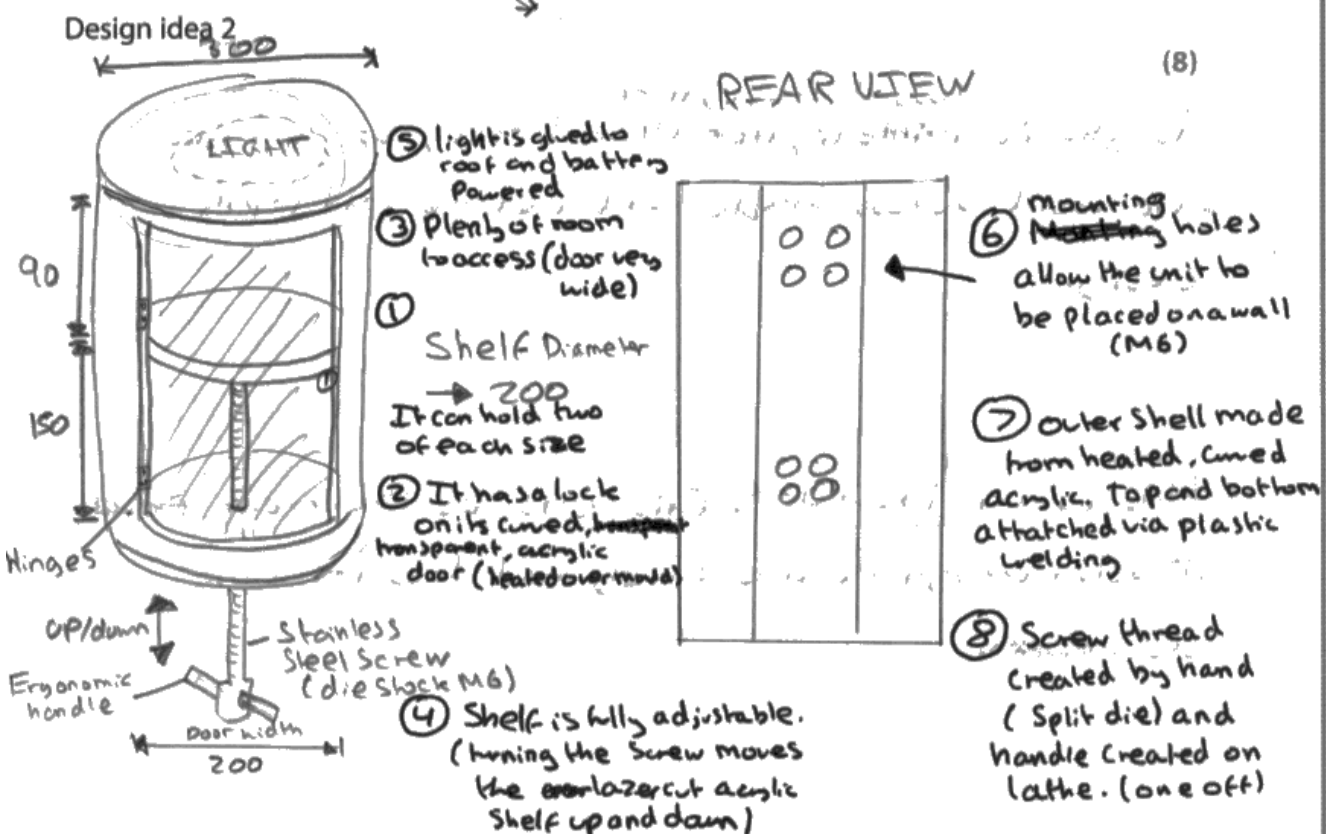 Design idea 2
300
(8)
REAR VIEW
LIGHT
90
150
Hinges
UP/down
Ergonomic
handle
Stainless
Steel Screw
(die stock M6)
Door width
200
⑤ light is glued to
roof and battery
Powered
③ Plenty of room
to access (door very
wide)
①
Shelf Diameter
→ 200
It can hold two
of each size
② It has a lock
on its curved,
transparent, acrylic
door (heated over mould)
④ Shelf is fully adjustable.
(turning the screw moves
the lazercut acrylic
Shelf up and down)
⑥ mounting
holes
allow the unit to
be placed on a wall
(M6)
⑦ outer shell made
from heated, curved
acrylic. Top and bottom
attatched via plastic
welding
⑧ Screw thread
created by hand
(Split die) and
handle created on
lathe. (one off)